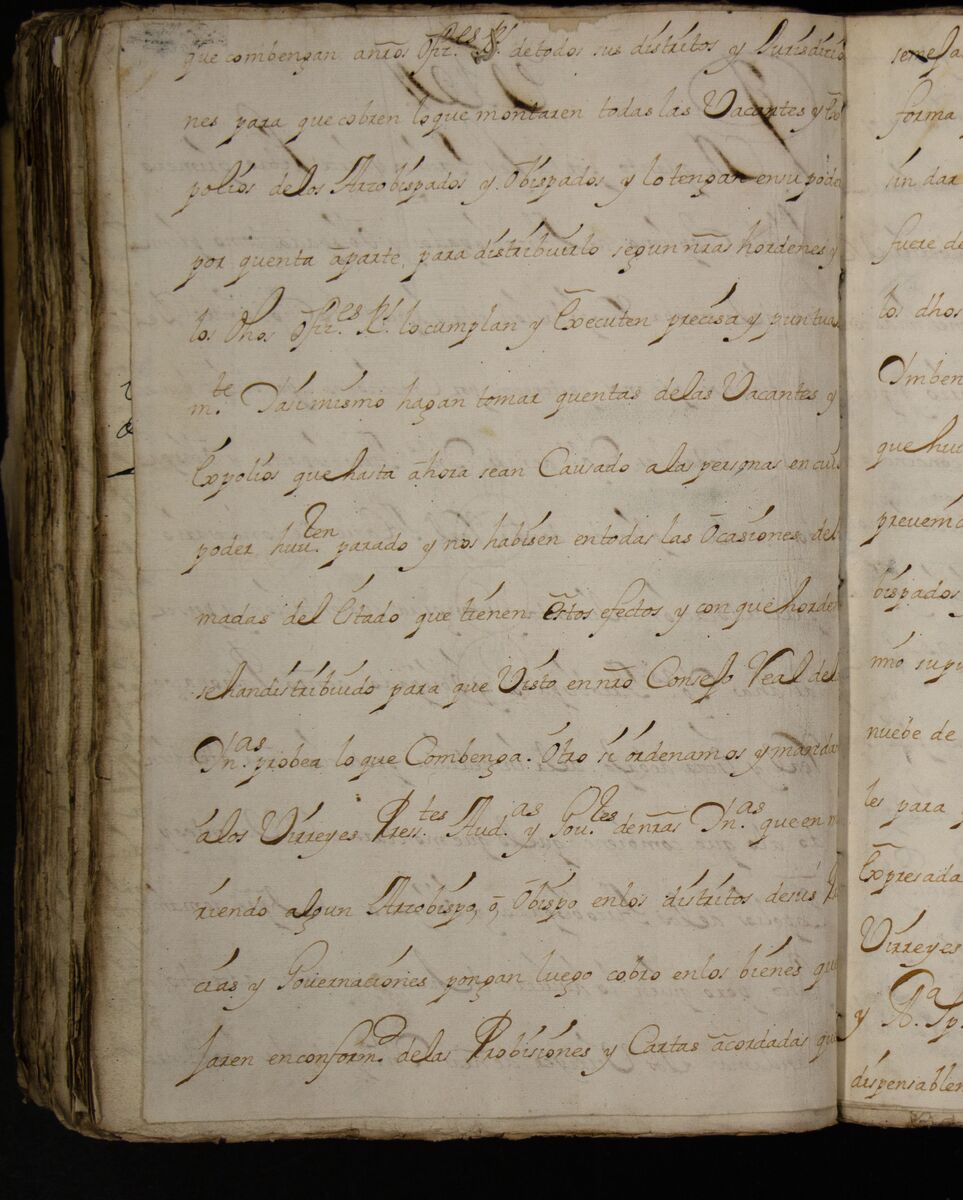 que combengan a nr̃os Ofiz.es R.s de todos sus distritos y Jurisdicio
nes para que cobren lo que montaren todas las Vacantes y Ex
polios de los Arzobispados y Obispados y lo tengan en su pode
por quenta aparte para distribuirlo segun nr̃as hordenes y
los dhos Ofiz.es R.s lo cumplan y Executen precisa y puntual
m.te Y asi mismo hagan tomar quentas de las Vacantes y
Expolios que hasta ahora sean Causado a las personas en cui
poder huu.ren parado y nos habisen en todas las Ocasiones de
madas del Estado que tienen estos efectos y con que horden
se han distribuido para que Visto en nr̃o Consejo Real de
Yn.as probea lo que Combenga. Otro si ordenamos y manda
a los Virreyes Press.tes Aud.as y Gou.res de nr̃as Yn.as que en m
riendo algun Arzobispo, o Obispo en los distritos de sus
cias y Gouernaciones pongan luego cobro en los bienes qu
jaren en conform.d de las Probisiones y Cartas acordadas qu
semeja
forma
sin dar
fuere de
los dhos
Ymben
que hui
preuem
bispados
mo supu
nuebe de
les para
Expresada
Virreyes
y A.a Sp.
dispensablem